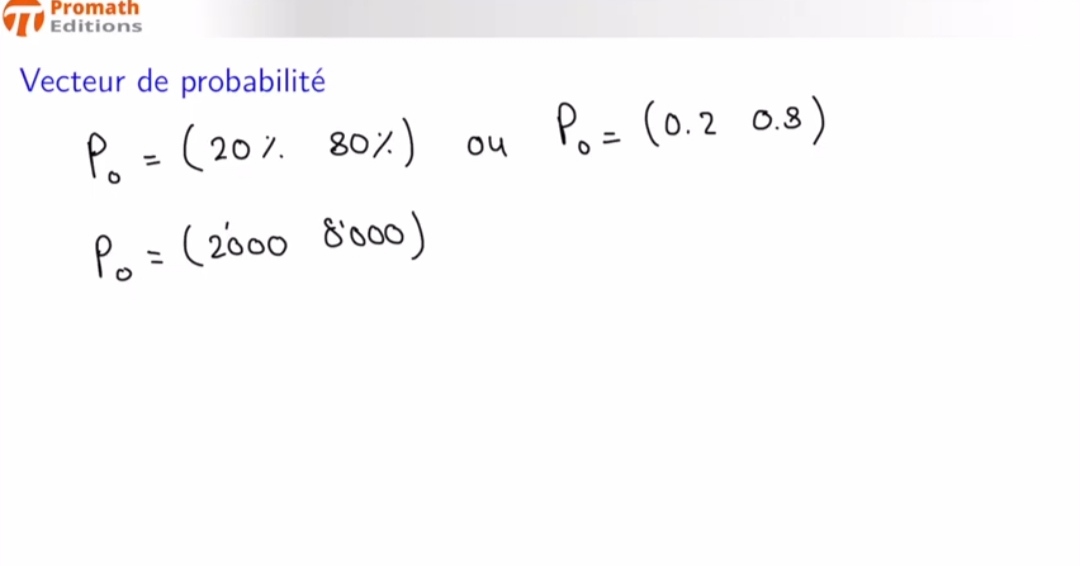 Promath
Editions
Vecteur de probabilité
P₀ = (20% 80%) ou P₀ = (0.2 0.8)
P₀ = (2'000 8'000)